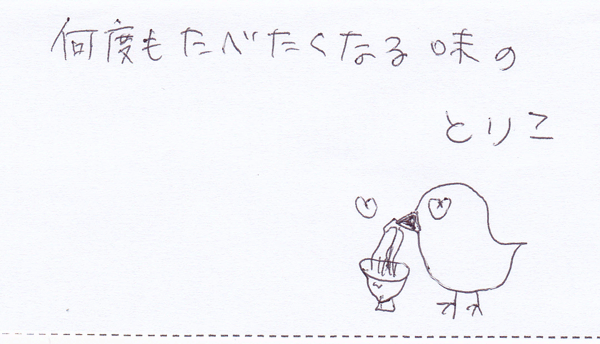 何度もたべたくなる味の
とりこ